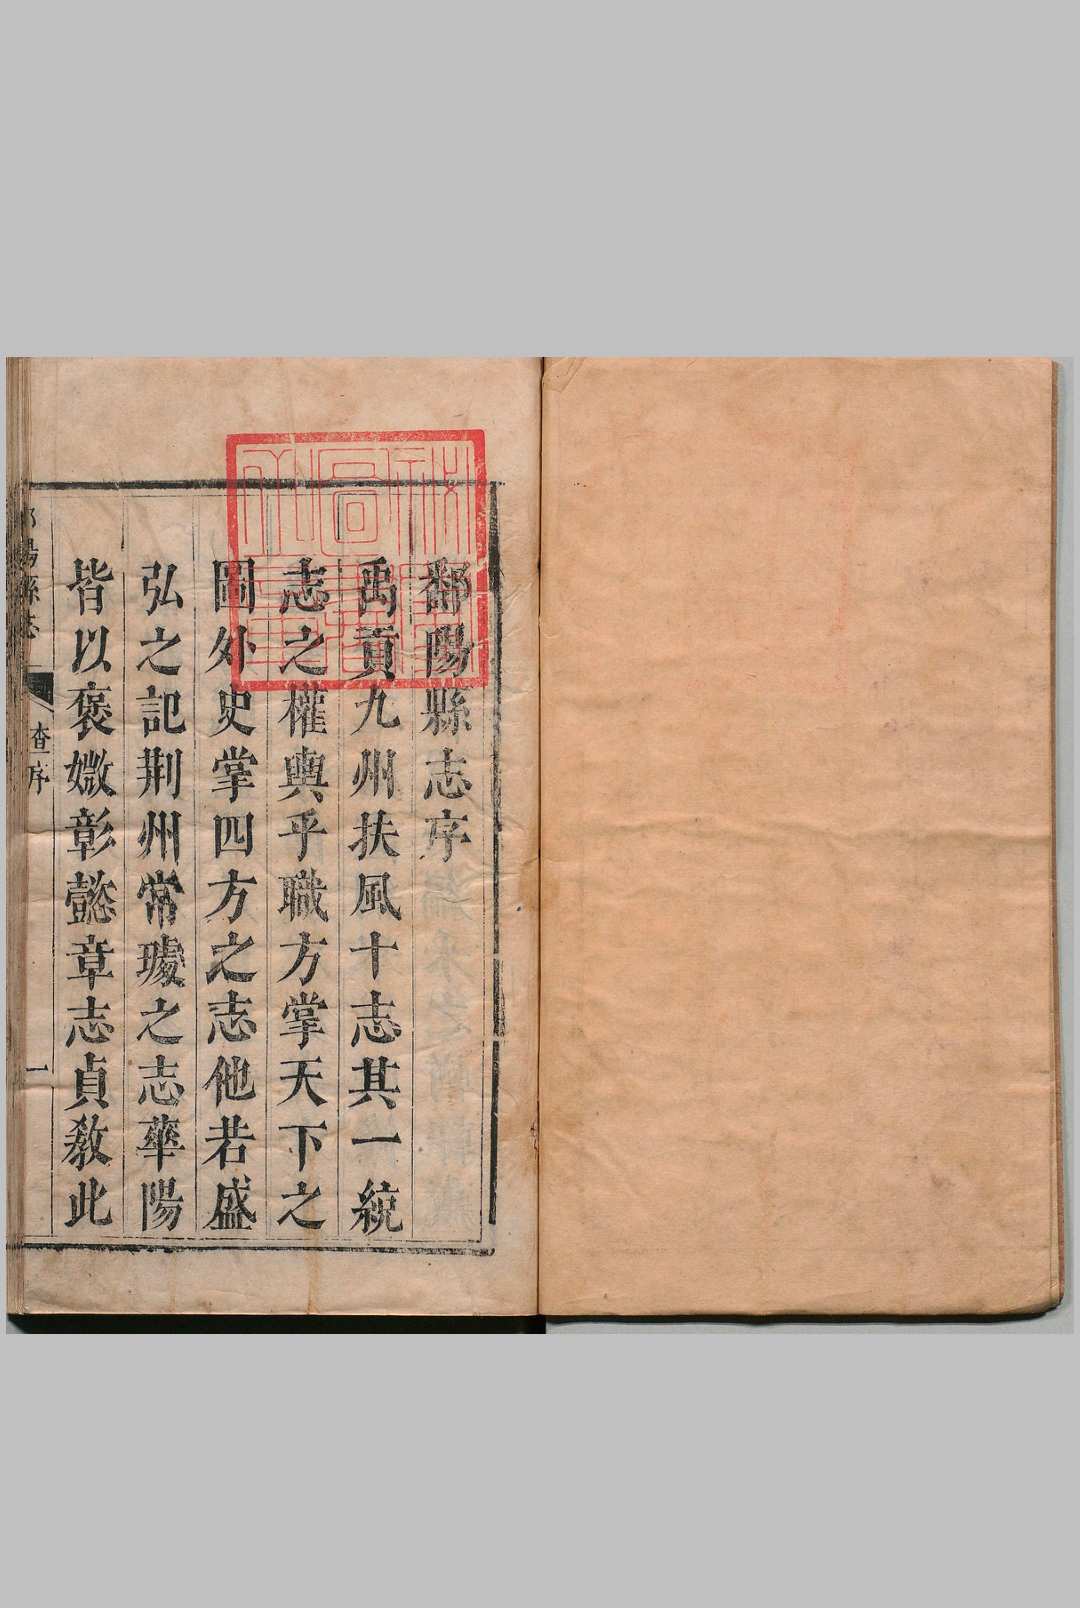 鄱陽縣志序
禹貢九州扶風十志其一統
志之權輿乎職方掌天下之
圖外史掌四方之志他若盛
弘之記荆州常璩之志華陽
皆以褒媺彰懿章志貞教此
陽縣志
查序
一